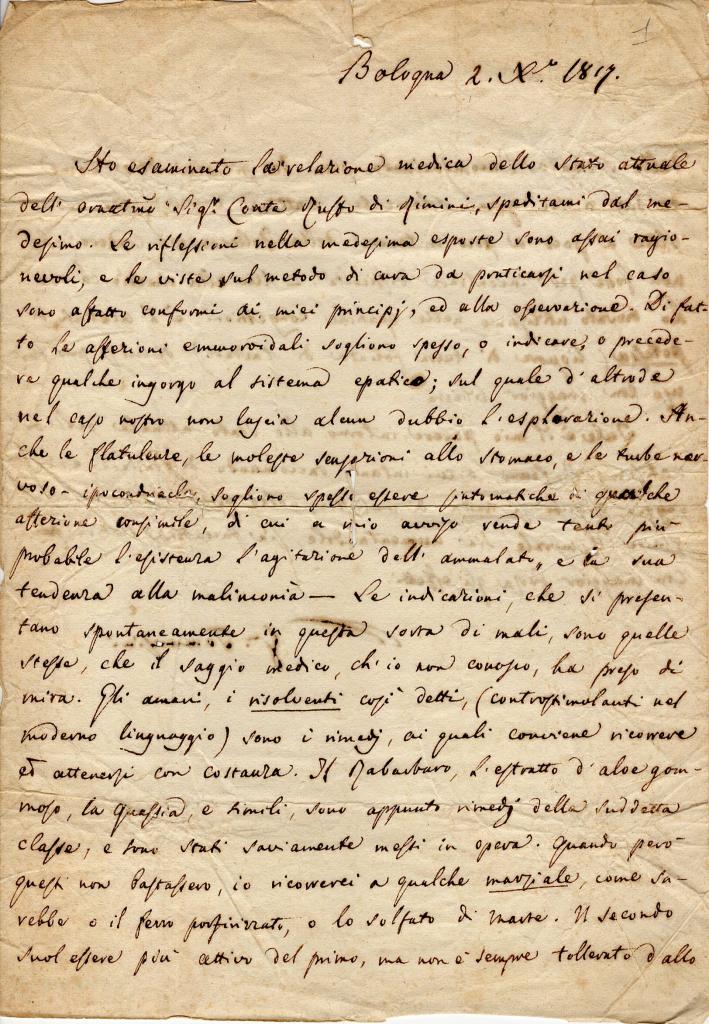 1
Bologna 2. Xbre 1817.
Ho esaminato la relazione medica dello stato attuale
dell' ornatmo Sigr. Conte Ruffo di Rimini, speditami dal me-
desimo. Le riflessioni nella medesima esposte sono assai ragio-
nevoli, e le viste sul metodo di cura da praticarsi nel caso
sono affatto conformi ai miei principj, ed alla osservazione. Di fat-
to le affezioni emmoroidali sogliono spesso, o indicare, o precede-
re qualche ingorgo al sistema epatico; sul quale d'altrode
nel caso nostro non lascia alcun dubbio l'esplorazione. An-
che le flatulenze, le moleste sensazioni allo stomaco, e le turbe ner-
voso-ipocondriache, sogliono spesso essere sintomatiche di qualche
affezione consimile, di cui a mio avviso rende tanto più
probabile l'esistenza l'agitazione dell' ammalato, e la sua
tendenza alla malinconia — Le indicazioni, che si presen-
tano spontaneamente in questa sorta di mali, sono quelle
stesse, che il saggio medico, ch'io non conosco, ha preso di
mira. Gli amari, i risolventi così detti, (controstimolanti nel
moderno linguaggio) sono i rimedj, ai quali conviene ricorrere
ed attenersi con costanza. Il Rabarbaro, l'estratto d'aloe gom-
moso, la Quassia, e simili, sono appunto rimedj della suddetta
classe, e sono stati saviamente messi in opera. Quando però
questi non bastassero, io ricorrerei a qualche marziale, come sa-
rebbe o il ferro porfirizzato, o lo solfato di marte. Il secondo
suol essere più attivo del primo, ma non è sempre tollerato dallo